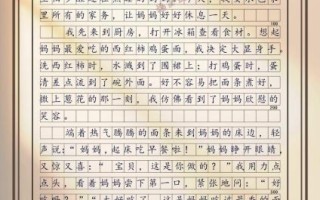 里所有的家务,让妈妈好好休息一天。
我先来到厨房,打开冰箱查看食材。想起
妈妈最爱吃的西红柿鸡蛋面,我决定大显身手。
洗西红柿时,水溅到了围裙上;打鸡蛋时,蛋
清差点流到了碗外面。好不容易把面条煮好,
撒上葱花的那一刻,我仿佛看到了妈妈欣慰的
笑容。
端着热气腾腾的面条来到妈妈的床边,轻
声说:“妈妈,起床吃早餐啦!”妈妈睁开眼睛,
又惊又喜:“宝贝,这是你做的?”我用力点
点头,看着妈妈尝下第一口,紧张地问:“好